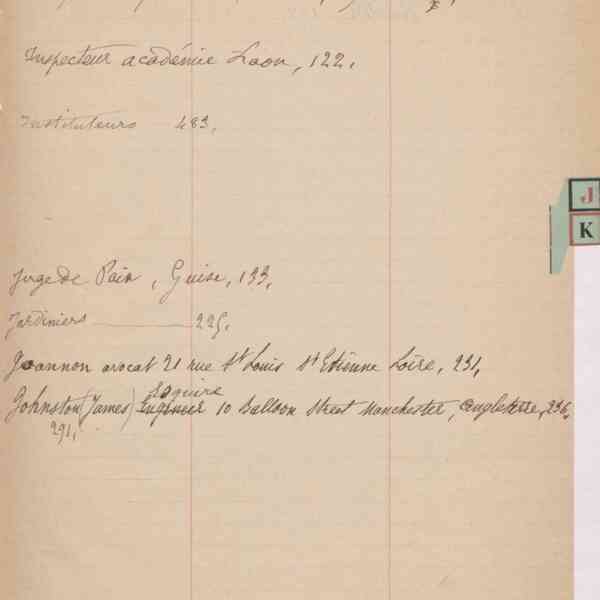 Inspecteur académie Laon, 122.
Instituteurs 483,
J
K
Juge de Paix, Guise, 133,
Jardiniers 225,
Joannon avocat 21 rue St Louis St Etienne Loire, 231,
Esquire
Johnston (James) Engineer 10 Balloon Street Manchester, Angleterre, 236,
291,